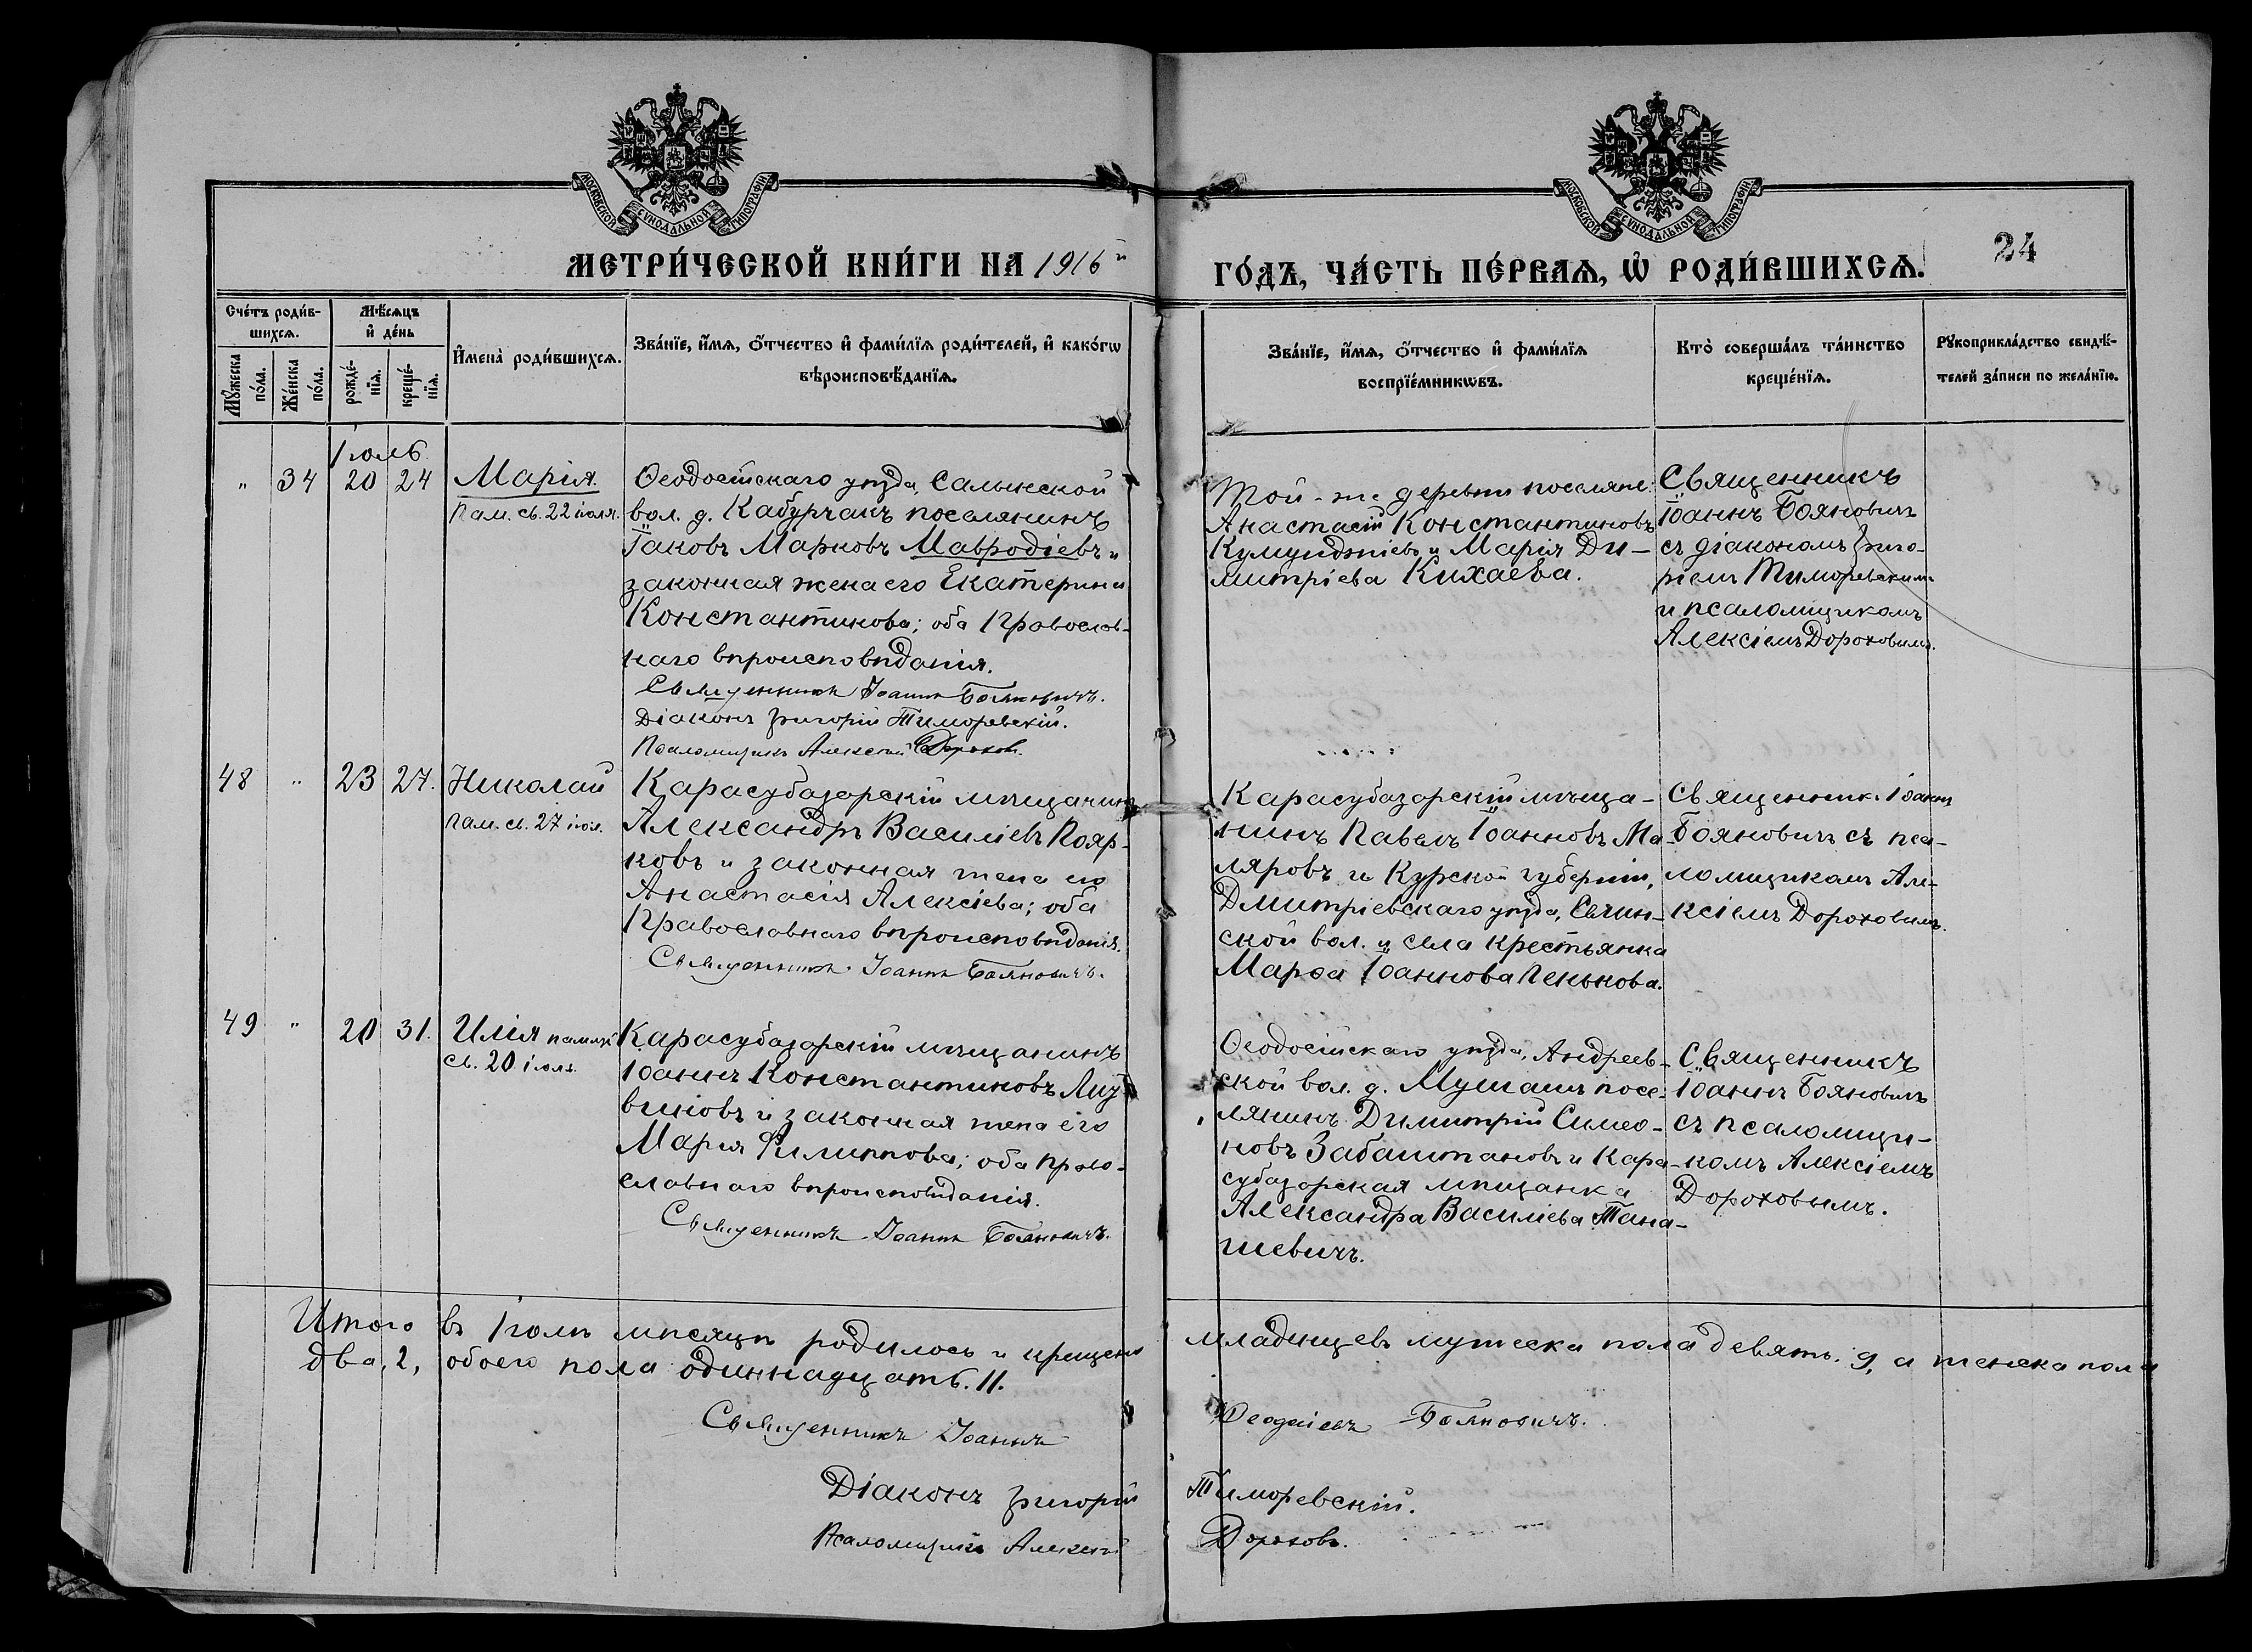 МОСКОВСКОЙ СѴНОДАЛЬНОЙ ТИПОГРАФІИ
МОСКОВСКОЙ СѴНОДАЛЬНОЙ ТИПОГРАФІИ
МЕТРИ́ЧЕСКОЙ КНИ́ГИ НА 1916й
ГО́ДЪ, ЧА́СТЬ ПЕ́РВАѦ, Ѡ҆ РОДИ́ВШИХСѦ.
24
Сче́тъ роди́в-
шихсѧ.
Мѣ́сяцъ
и҆ де́нь
Мꙋ́жеска
по́ла.
Же́нска
по́ла.
рожде́-
нїѧ.
креще́-
нїѧ.
И҆мена̀ роди́вшихсѧ.
Зва́нїе, и҆́мѧ, ѻ҆́тчество и҆ фами́лїѧ роди́телей, и҆ како́гѡ
вѣроисповѣ́данїѧ.
Зва́нїе, и҆́мѧ, ѻ҆́тчество и҆ фами́лїѧ
воспрїе́мникѡвъ.
Кто̀ соверша́лъ та́инство
креще́нїѧ.
Рꙋкоприкла́дство свидѣ́-
телей за́писи по жела́нїю.
Іюль
" 34 20 24 Марія.
пам. св. 22 іюля.
Ѳеодосійскаго уѣзда, Салынской
вол. д. Кабурчакъ поселянинъ
Іаковъ Марковъ Мавродіевъ и
законная жена его Екатерина
Константинова; оба Православ-
наго вѣроисповѣданія.
Священникъ Іоаннъ Бояновичъ.
Діаконъ Григорій Тиморевскій.
Псаломщикъ Алексій Дороховъ.
Той-же деревни поселяне:
Анастасій Константиновъ
Кумунджіевъ и Марія Ди-
митріева Кихаева.
Священникъ
Іоаннъ Бояновичъ
съ діакономъ Григо-
ріемъ Тиморевскимъ
и псаломщикомъ
Алексіемъ Дороховымъ.
48 " 23 27. Николай
пам. св. 27 іюл.
Карасубазарскій мѣщанинъ
Александръ Василіевъ Пояр-
ковъ и законная жена его
Анастасія Алексіева; оба
Православнаго вѣроисповѣданія.
Священникъ Іоаннъ Бояновичъ.
Карасубазарскій мѣща-
нинъ Павелъ Іоанновъ Ма-
ляровъ и Курской губерніи,
Дмитріевскаго уѣзда,
ской вол. и села крестьянка
Марѳа Іоаннова Пенькова.
Священник. Іоаннъ
Бояновичъ съ пса-
ломщикомъ Але-
ксіемъ Дороховымъ.
49 " 20 31. Илія память
св. 20 іюля.
Карасубазарскій мѣщанинъ
Іоаннъ Константиновъ
и законная жена его
Марія Филиппова; оба право-
славнаго вѣроисповѣданія.
Священникъ Іоаннъ Бояновичъ.
Ѳеодосійскаго уѣзда, Андреев-
ской вол. д. Мушашъ посе-
лянинъ Димитрій Симео-
новъ Забаштановъ и Кара-
субазарская мѣщанка
Александра Василіева Тана-
шевичъ.
Священникъ
Іоаннъ Бояновичъ
съ псаломщи-
комъ Алексіемъ
Дороховымъ.
Итого въ Іюлѣ мѣсяцѣ родилось и крещено младенцевъ мужеска пола девять. 9, а женска пола
два, 2, обоего пола одиннадцать. 11.
Священникъ Іоаннъ Бояновичъ.
Діаконъ Григорій Тиморевскій.
Псаломщикъ Алексій Дороховъ.